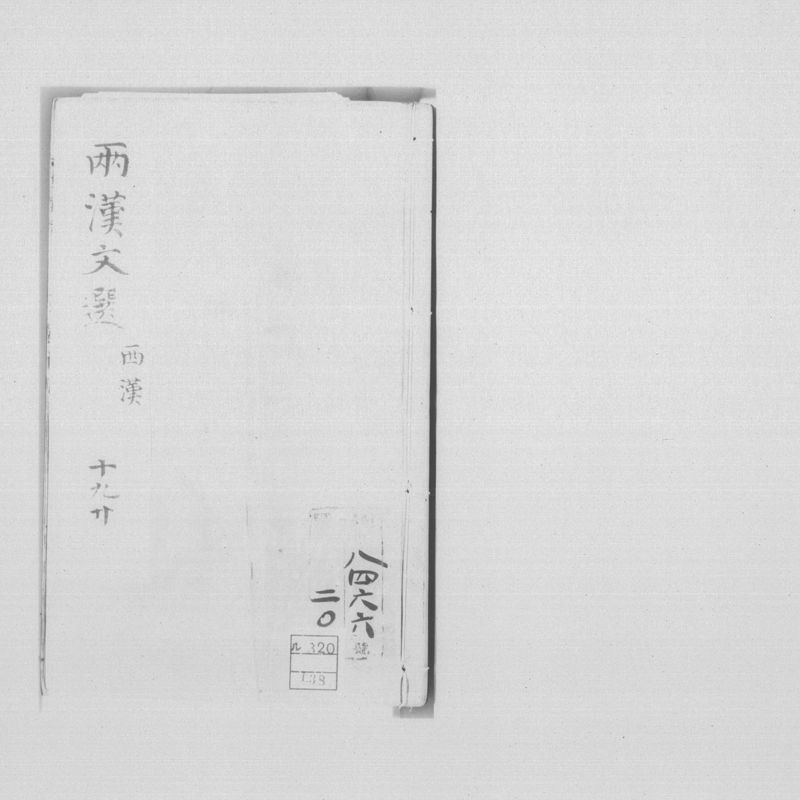 兩漢文選
西漢
十九廿
八四六六
號
二〇
ル 320
138